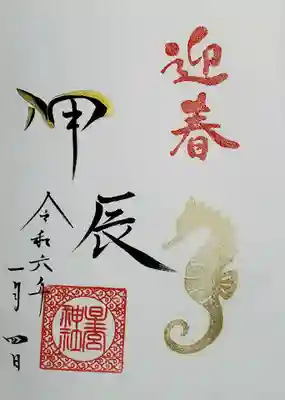 迎春
甲
辰
令和六年
一月四日
神社